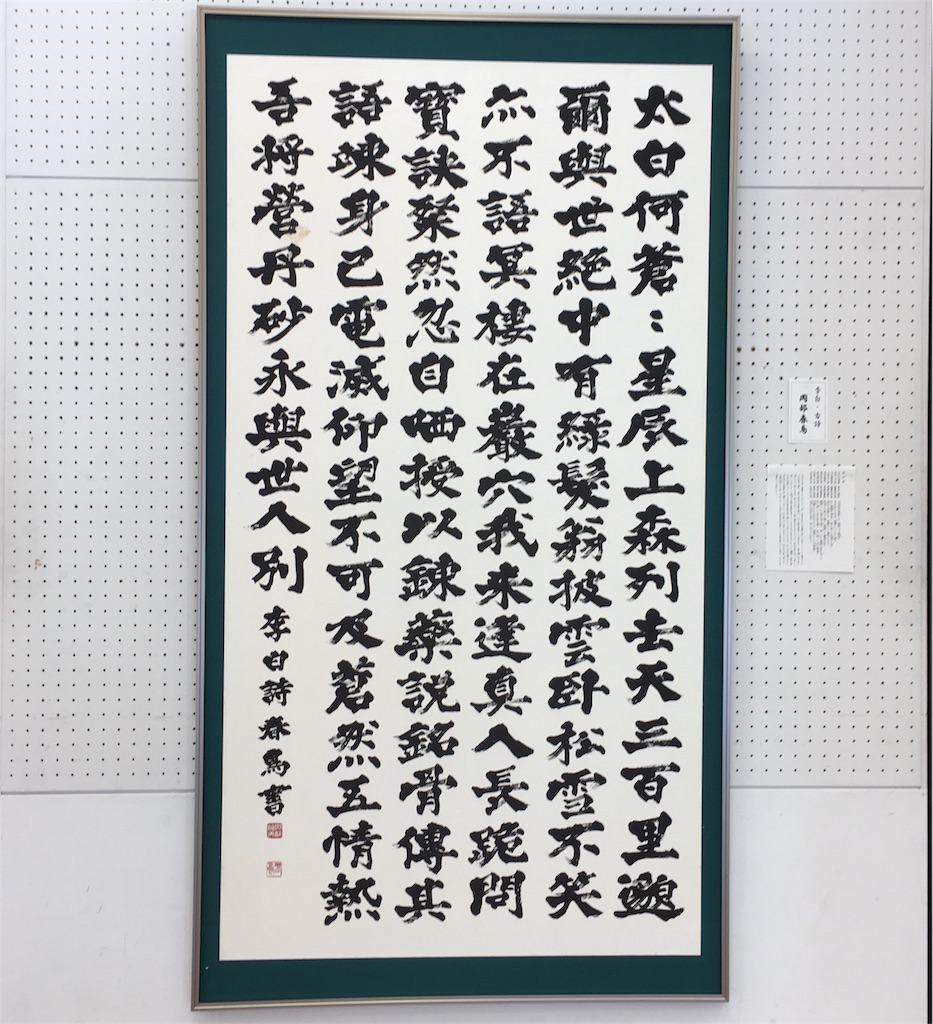 太白何蒼〻星辰上森列去天三百里邈
爾與世絶中有緑髮翁披雲臥松雪不笑
亦不語冥棲在巖穴我来逢真人長跪問
寶訣粲然忽自哂授以錬藥説銘骨傳其
語竦身已電滅仰望不可及蒼然五情熱
吾將營丹砂永與世人別 李白詩春馬書
李白・古詩